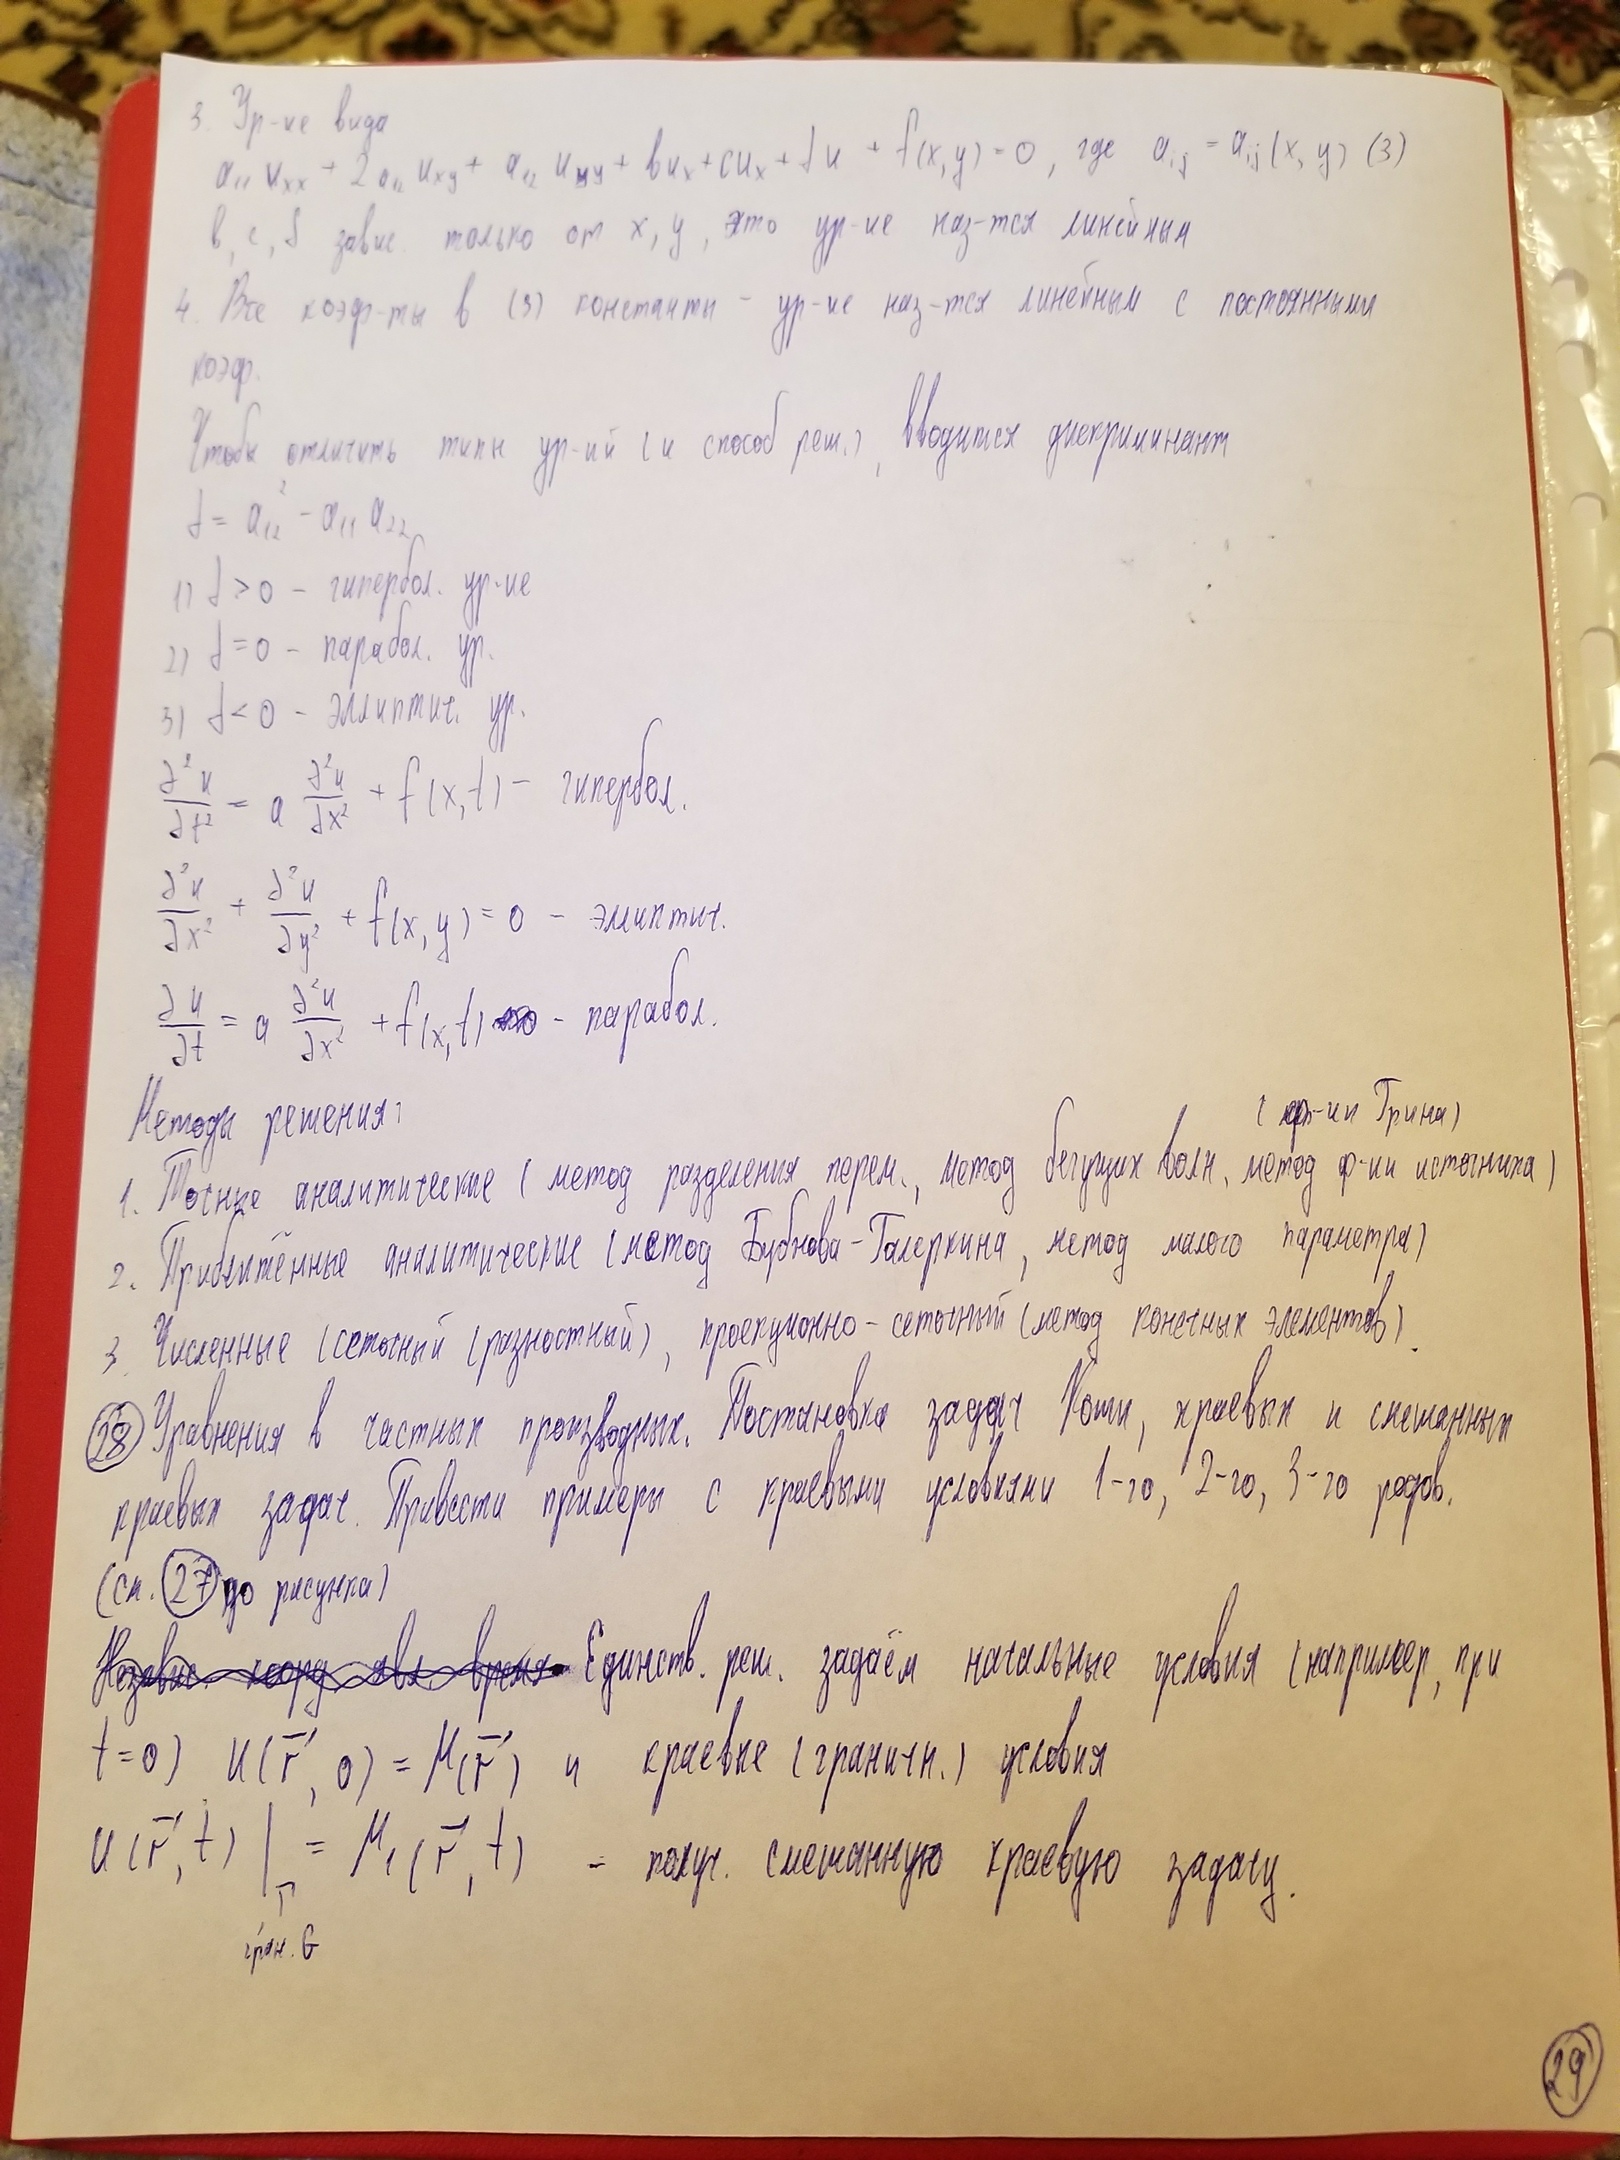 3. Ур-ие вида
a₁₁ uₓₓ + 2a₁₂ uₓᵧ + a₁₂ uᵧᵧ + buₓ + cuₓ + du + f(x, y) = 0, где aᵢⱼ = aᵢⱼ(x, y) (3)
b, c, d завис. только от x, y, это ур-ие наз-тся линейным
4. Все коэф-ты в (3) константы - ур-ие наз-тся линейным с постоянными
коэф.
Чтобы отличить типы ур-ий (и способ реш.), вводится дискриминант
d = a₁₂² - a₁₁ a₂₂
1) d > 0 - гипербол. ур-ие
2) d = 0 - парабол. ур.
3) d < 0 - эллиптич. ур.
∂²u/∂t² = a ∂²u/∂x² + f(x, t) - гипербол.
∂²u/∂x² + ∂²u/∂y² + f(x, y) = 0 - эллиптич.
∂u/∂t = a ∂²u/∂x² + f(x, t) - парабол.
Методы решения:
(ф-ии Грина)
1. Точные аналитические (метод разделения перем., метод бегущих волн, метод ф-ии источника)
2. Приближённые аналитические (метод Бубнова-Галеркина, метод малого параметра)
3. Численные (сеточный (разностный), проекционно-сеточный (метод конечных элементов).
28 Уравнения в частных производных. Постановка задач Коши, краевых и смешанных
краевых задач. Привести примеры с краевыми условиями 1-го, 2-го, 3-го родов.
(см. 27 до рисунка)
Независ. коорд. явл. время Единств. реш. задаём начальные условия (например, при
t=0) u(r⃗, 0) = μ(r⃗) и краевые (граничн.) условия
u(r⃗, t)|_Γ = μ₁(r⃗, t) - получ. смешанную краевую задачу.
гран. G
29